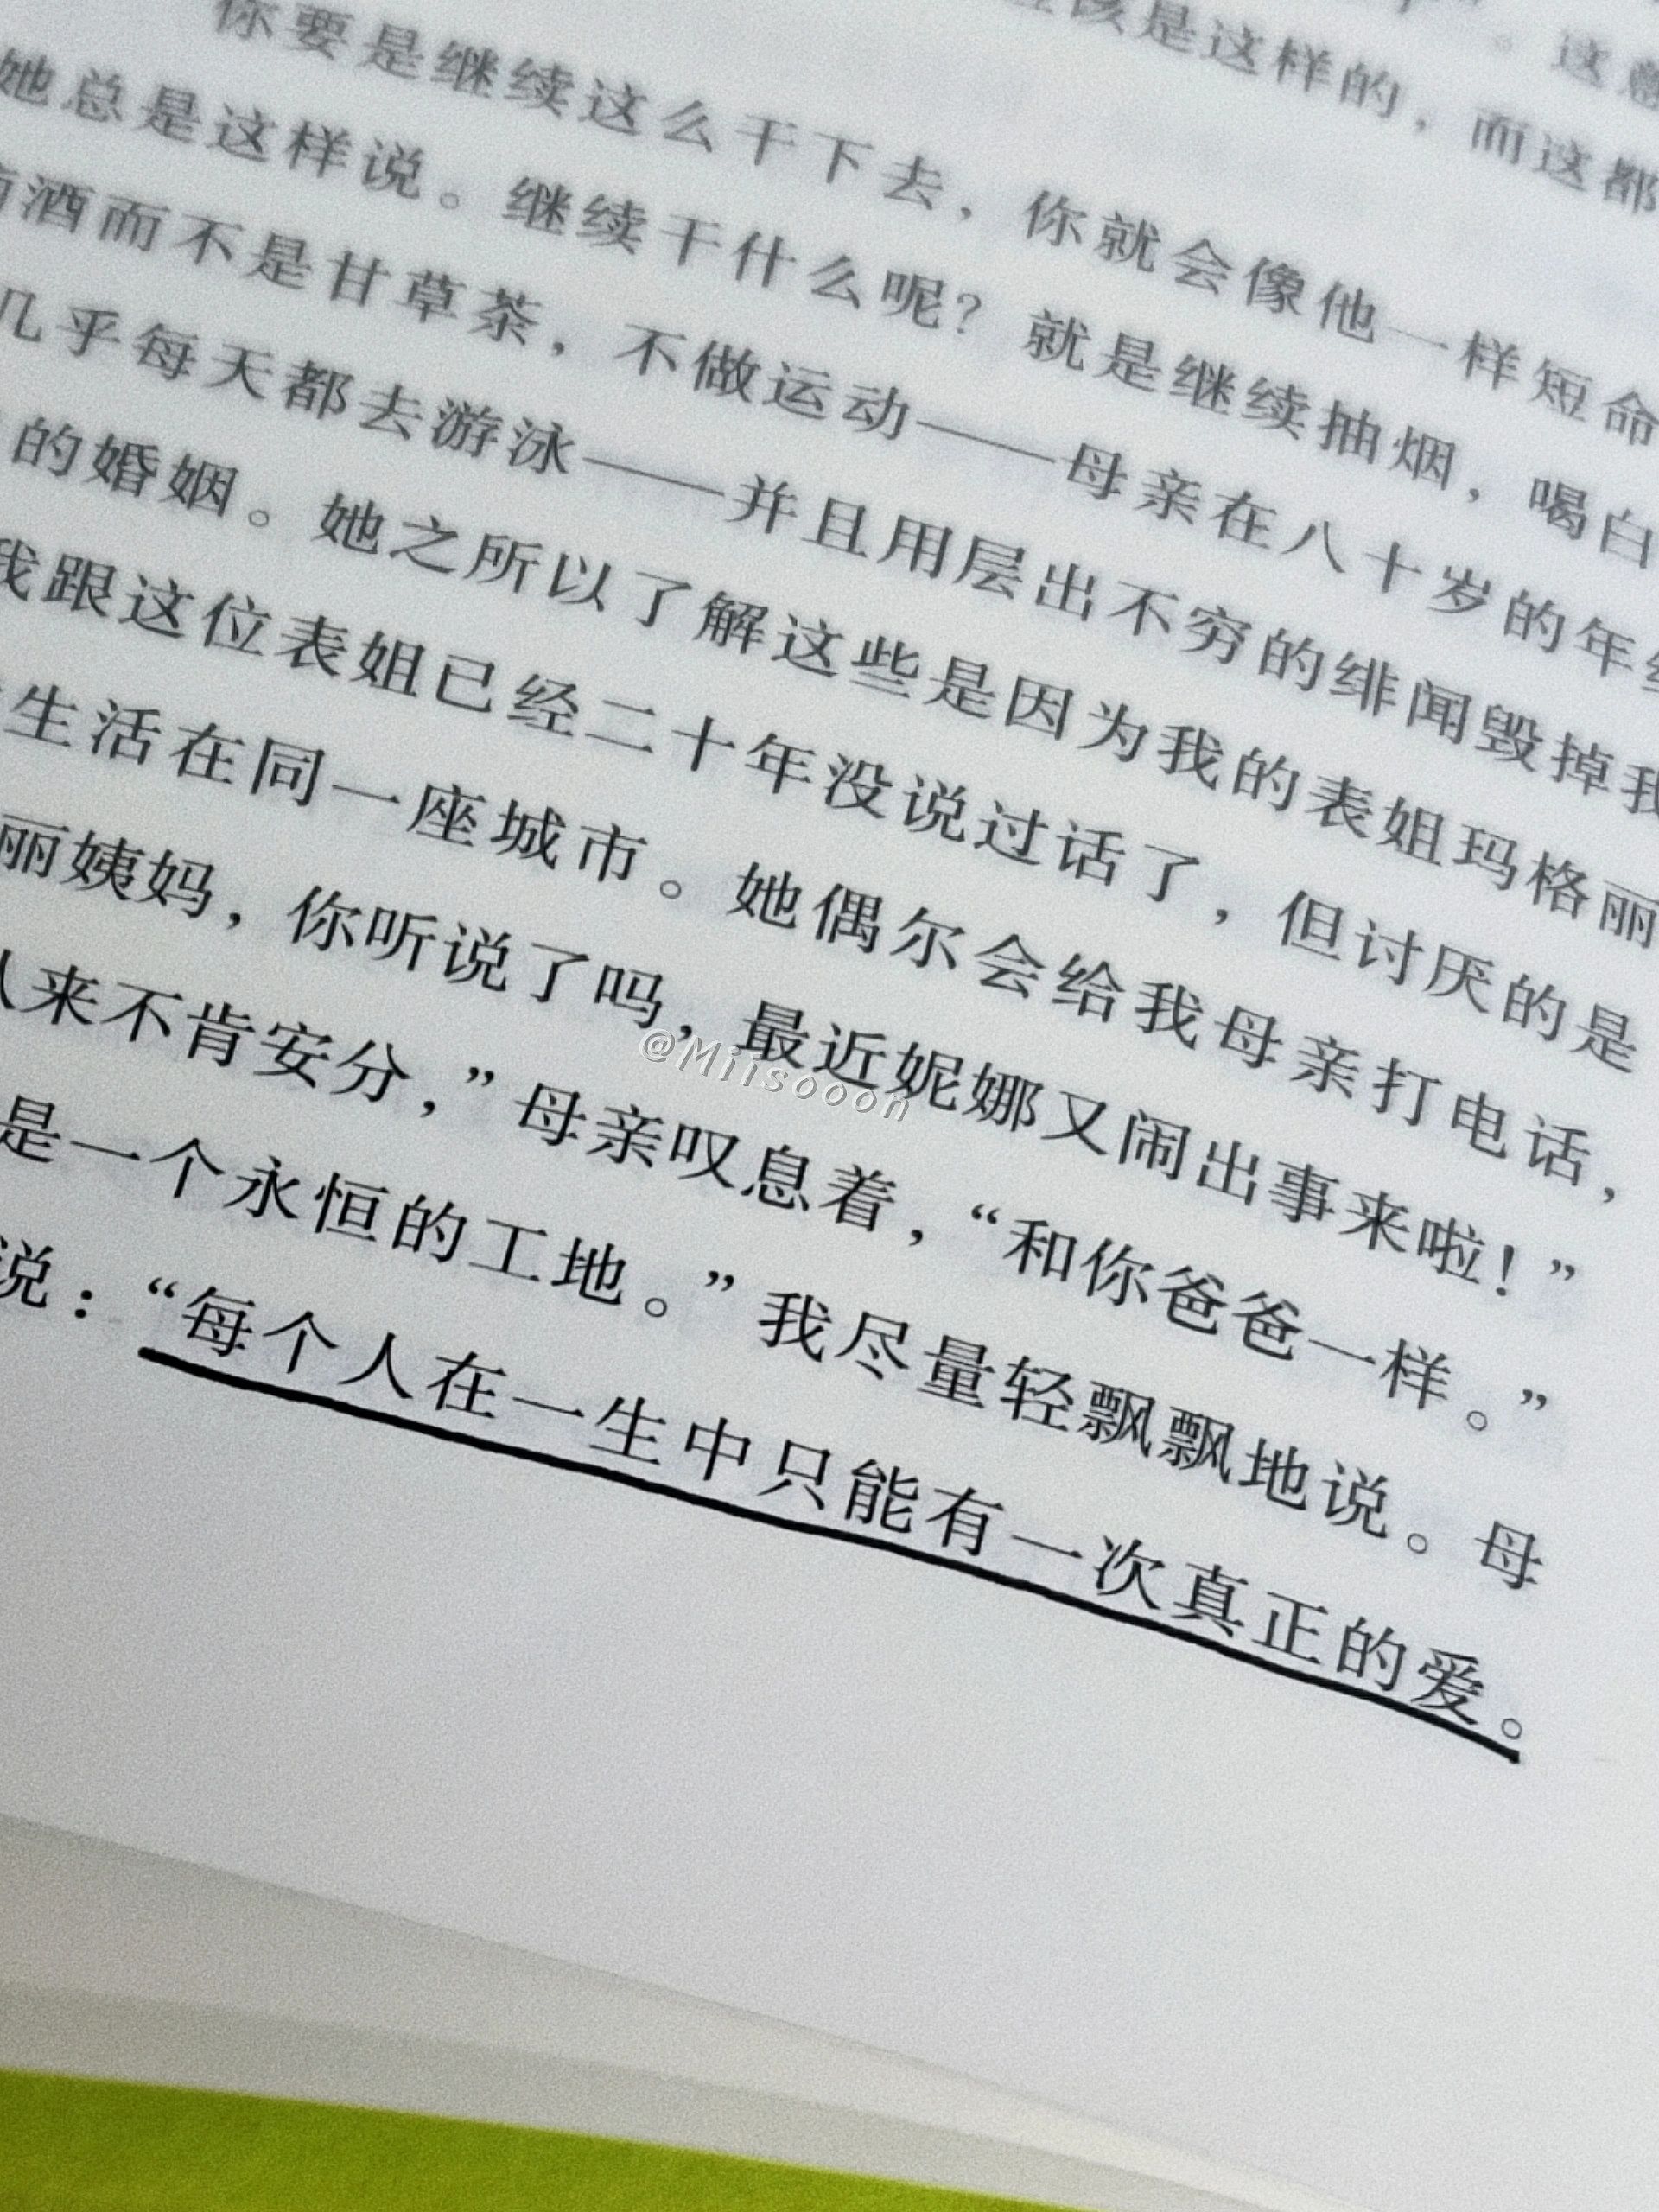 应该是这样的，而这都
你要是继续这么干下去，你就会像他一样短命
她总是这样说。继续干什么呢？就是继续抽烟，喝白
萄酒而不是甘草茶，不做运动——母亲在八十岁的年纪
几乎每天都去游泳——并且用层出不穷的绯闻毁掉我
的婚姻。她之所以了解这些是因为我的表姐玛格丽
我跟这位表姐已经二十年没说过话了，但讨厌的是
生活在同一座城市。她偶尔会给我母亲打电话，
丽姨妈，你听说了吗，最近妮娜又闹出事来啦！”
从来不肯安分，”母亲叹息着，“和你爸爸一样。”
是一个永恒的工地。”我尽量轻飘飘地说。母
说：“每个人在一生中只能有一次真正的爱。
@Miisooon